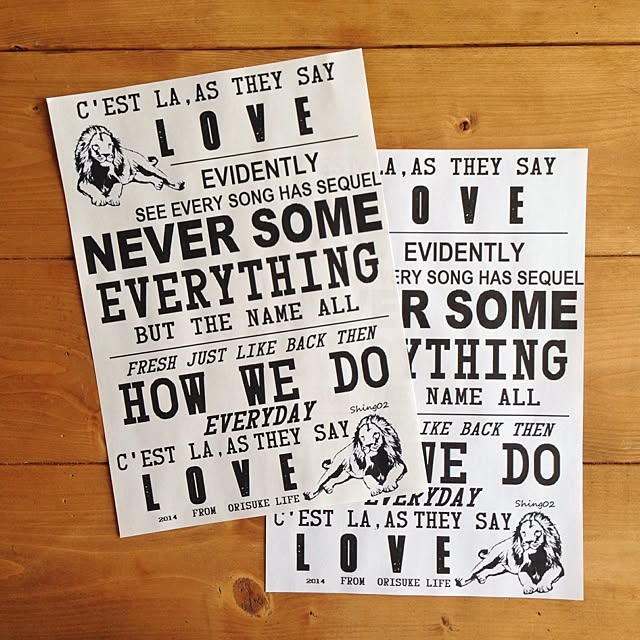 C'EST LA,AS THEY SAY
LOVE
EVIDENTLY
SEE EVERY SONG HAS SEQUEL
NEVER SOME
EVERYTHING
BUT THE NAME ALL
FRESH JUST LIKE BACK THEN
HOW WE DO
EVERYDAY
Shing02
C'EST LA,AS THEY SAY
LOVE
2014 FROM ORISUKE LIFE
LA,AS THEY SAY
OVE
EVIDENTLY
ERY SONG HAS SEQUEL
R SOME
YTHING
NAME ALL
IKE BACK THEN
WE DO
EVERYDAY
Shing02
C'EST LA,AS THEY SAY
LOVE
2014 FROM ORISUKE LIFE